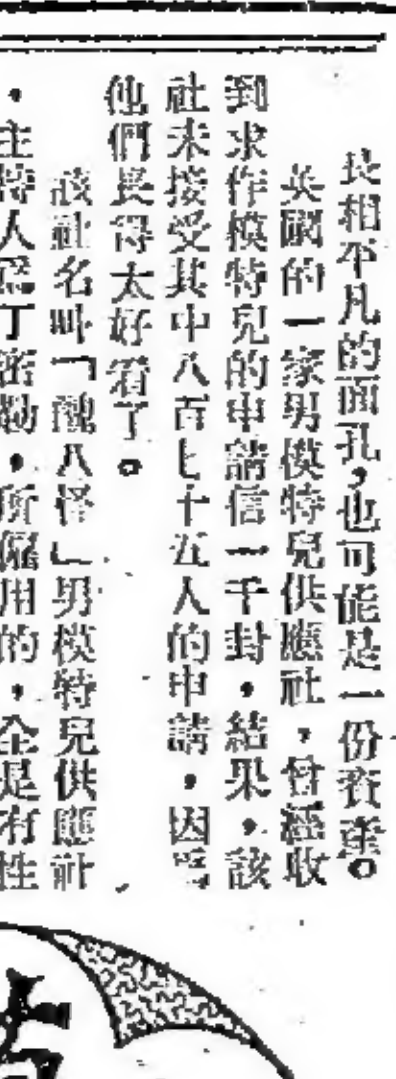 長相不凡的面孔，也可能是一份資產。
英國的一家男模特兒供應社，曾經收
到求作模特兒的申請信一千封，結果，該
社未接受其中八百七十五人的申請，因爲
他們長得太好看了。
該社名叫「醜八怪」男模特兒供應社
，主持人爲丁密勒，所僱用的，全是有性